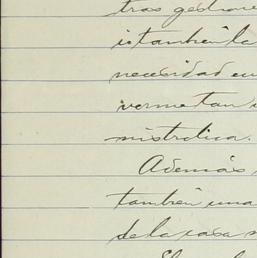 tras gestione
is tambien la
necesidad en
verme tan
mistralica.
Además
también una
de la casa